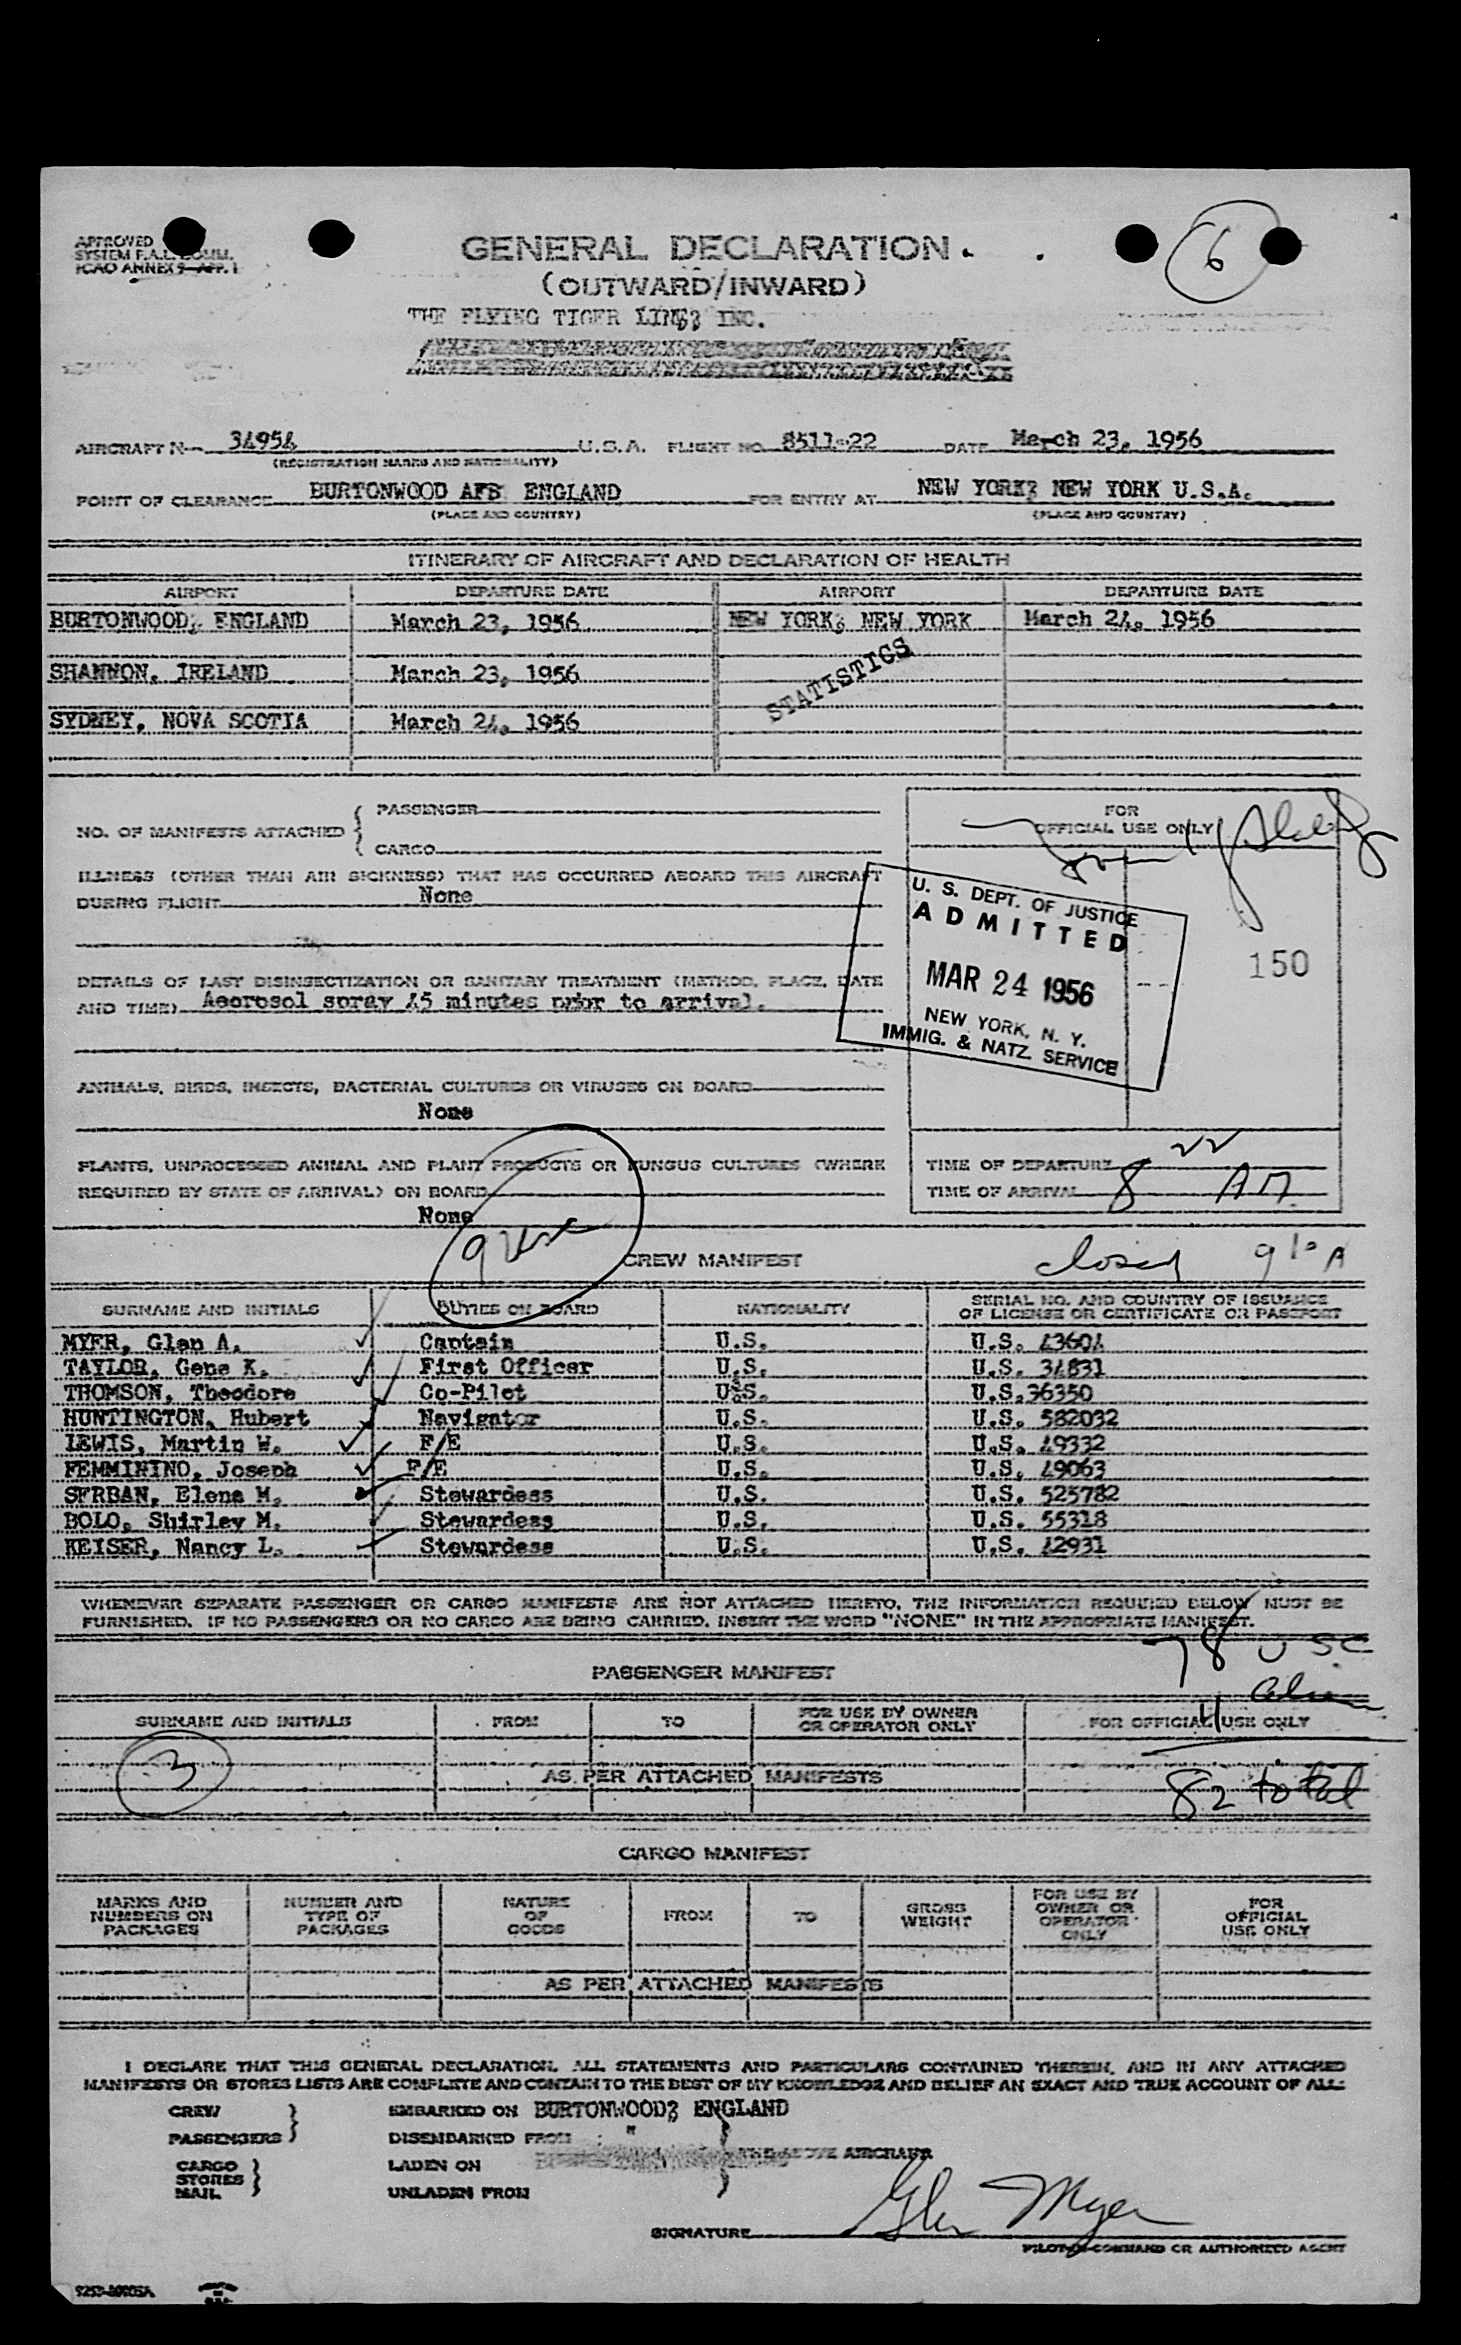 APPROVED
SYSTEM F.A.L. COMM.
ICAO ANNEX 9-APP. 1
GENERAL DECLARATION
(OUTWARD/INWARD)
6
THE FLYING TIGER LINE; INC.
AIRCRAFT N— 34954 U.S.A. FLIGHT NO. 8511-22 DATE March 23, 1956
(REGISTRATION MARKS AND NATIONALITY)
POINT OF CLEARANCE BURTONWOOD AFB ENGLAND FOR ENTRY AT NEW YORK; NEW YORK U.S.A.
(PLACE AND COUNTRY) (PLACE AND COUNTRY)
ITINERARY OF AIRCRAFT AND DECLARATION OF HEALTH
AIRPORT DEPARTURE DATE AIRPORT DEPARTURE DATE
BURTONWOOD, ENGLAND March 23, 1956 NEW YORK; NEW YORK March 24, 1956
SHANNON, IRELAND March 23, 1956
STATISTICS
SYDNEY, NOVA SCOTIA March 24, 1956
NO. OF MANIFESTS ATTACHED { PASSENGER
CARGO
FOR
OFFICIAL USE ONLY
ILLNESS (OTHER THAN AIR SICKNESS) THAT HAS OCCURRED ABOARD THIS AIRCRAFT
DURING FLIGHT None
U. S. DEPT. OF JUSTICE
ADMITTED
MAR 24 1956
NEW YORK, N. Y.
IMMIG. & NATZ. SERVICE
150
DETAILS OF LAST DISINSECTIZATION OR SANITARY TREATMENT (METHOD, PLACE, DATE
AND TIME) Aeorosol spray 45 minutes prior to arrival.
ANIMALS, BIRDS, INSECTS, BACTERIAL CULTURES OR VIRUSES ON BOARD
None
PLANTS, UNPROCESSED ANIMAL AND PLANT PRODUCTS OR FUNGUS CULTURES (WHERE
REQUIRED BY STATE OF ARRIVAL) ON BOARD
None
TIME OF DEPARTURE
TIME OF ARRIVAL 8 22 AM
9 USC
CREW MANIFEST
closed 9 10 A
SURNAME AND INITIALS DUTIES ON BOARD NATIONALITY SERIAL NO. AND COUNTRY OF ISSUANCE
OF LICENSE OR CERTIFICATE OR PASSPORT
MYER, Glen A. Captain U.S. U.S. 43604
TAYLOR, Gene K. First Officer U.S. U.S. 34831
THOMSON, Theodore Co-Pilot U.S. U.S.36350
HUNTINGTON, Hubert Navigator U.S. U.S. 582032
LEWIS, Martin W. F/E U.S. U.S. 49332
FEMMININO, Joseph F/E U.S. U.S. 49063
SERBAN, Elena M. Stewardess U.S. U.S. 525782
BOLO, Shirley M. Stewardess U.S. U.S. 55318
KEISER, Nancy L. Stewardess U.S. U.S. 42931
WHENEVER SEPARATE PASSENGER OR CARGO MANIFESTS ARE NOT ATTACHED HERETO, THE INFORMATION REQUIRED BELOW MUST BE
FURNISHED. IF NO PASSENGERS OR NO CARGO ARE BEING CARRIED, INSERT THE WORD "NONE" IN THE APPROPRIATE MANIFEST.
78 USC
PASSENGER MANIFEST
4 alien
SURNAME AND INITIALS FROM TO FOR USE BY OWNER
OR OPERATOR ONLY FOR OFFICIAL USE ONLY
3
AS PER ATTACHED MANIFESTS
82 total
CARGO MANIFEST
MARKS AND
NUMBERS ON
PACKAGES NUMBER AND
TYPE OF
PACKAGES NATURE
OF
GOODS FROM TO GROSS
WEIGHT FOR USE BY
OWNER OR
OPERATOR
ONLY FOR
OFFICIAL
USE ONLY
AS PER ATTACHED MANIFESTS
I DECLARE THAT THIS GENERAL DECLARATION, ALL STATEMENTS AND PARTICULARS CONTAINED THEREIN, AND IN ANY ATTACHED
MANIFESTS OR STORES LISTS ARE COMPLETE AND CONTAIN TO THE BEST OF MY KNOWLEDGE AND BELIEF AN EXACT AND TRUE ACCOUNT OF ALL:
CREW } EMBARKED ON BURTONWOOD; ENGLAND
PASSENGERS DISEMBARKED FROM "
CARGO LADEN ON THE ABOVE AIRCRAFT
STORES }
MAIL UNLADEN FROM
SIGNATURE Glen Myer
PILOT-IN-COMMAND OR AUTHORIZED AGENT